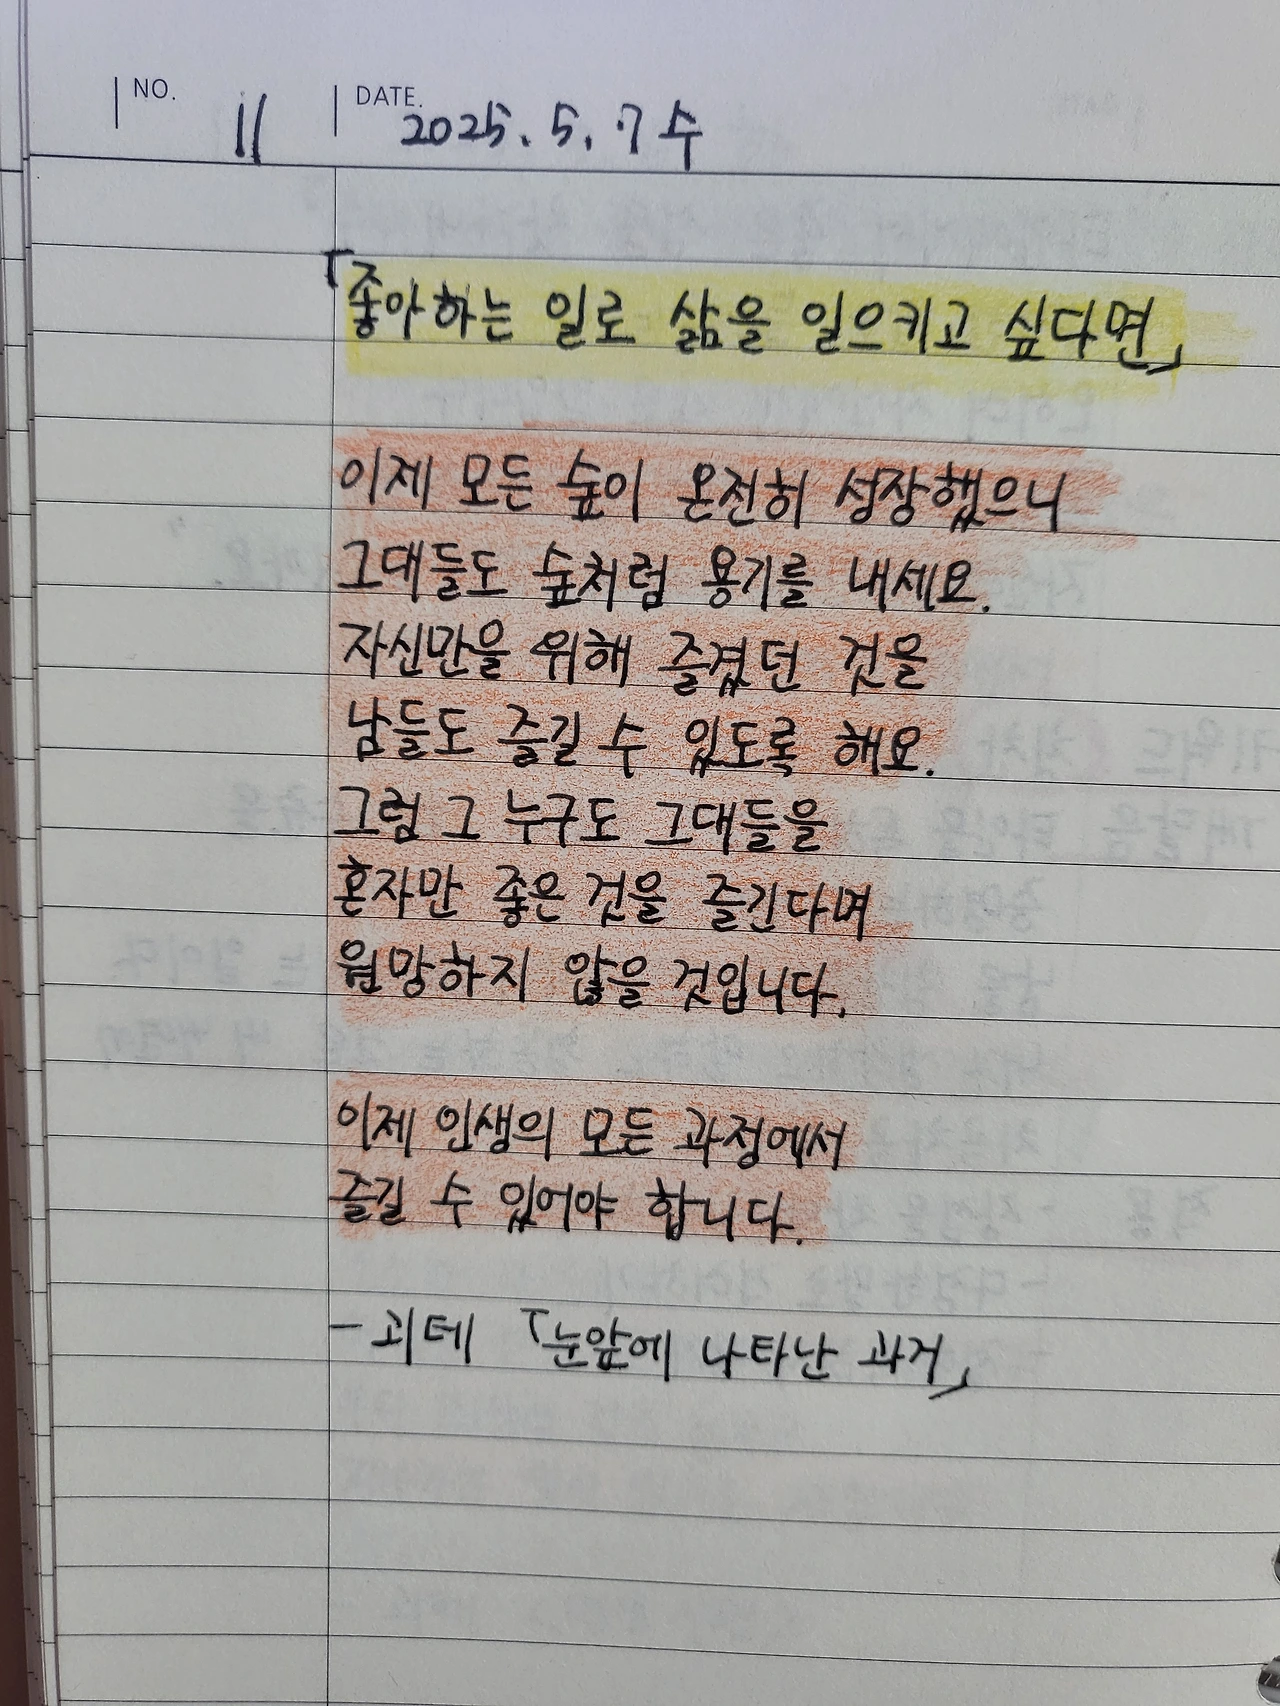 NO. 11 DATE. 2025. 5. 7 수
「좋아하는 일로 삶을 일으키고 싶다면」
이제 모든 숲이 온전히 성장했으니
그대들도 숲처럼 용기를 내세요.
자신만을 위해 즐겼던 것을
남들도 즐길 수 있도록 해요.
그럼 그 누구도 그대들을
혼자만 좋은 것을 즐긴다며
원망하지 않을 것입니다.
이제 인생의 모든 과정에서
즐길 수 있어야 합니다.
- 괴테 「눈앞에 나타난 과거」